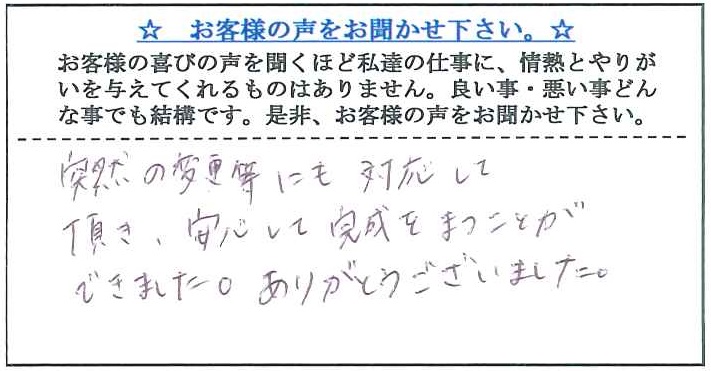 ☆　お客様の声をお聞かせ下さい。☆
お客様の喜びの声を聞くほど私達の仕事に、情熱とやりが
いを与えてくれるものはありません。良い事・悪い事どん
な事でも結構です。是非、お客様の声をお聞かせ下さい。
突然の変更等にも対応して
頂き、安心して完成をまつことが
できました。ありがとうございました。